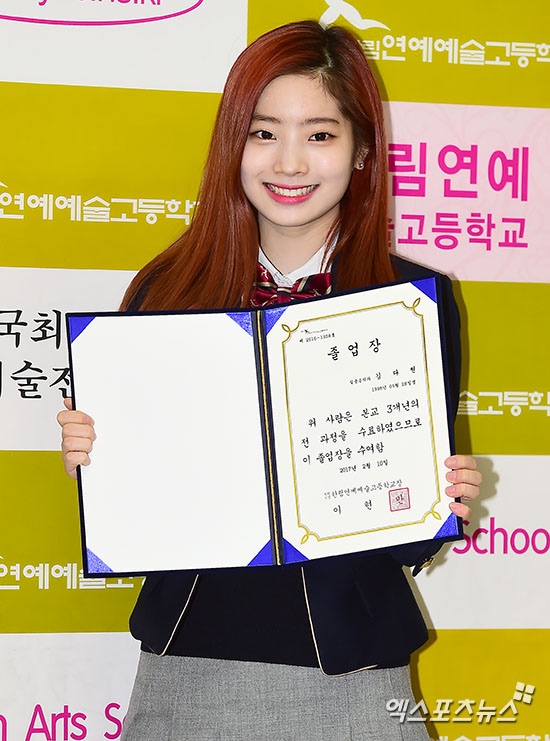 림연예예술고등학
연예예술고등학
림연예
고등학교
국최
술전
졸업장
김다현
위 사람은 본교 3개년의
전 과정을 수료하였으므로
이 졸업장을 수여함
2017년 2월 10일
한림연예예술고등학교장
이 현 만
술고등학
School
연예예술고
Arts Sc
엑스포츠뉴스